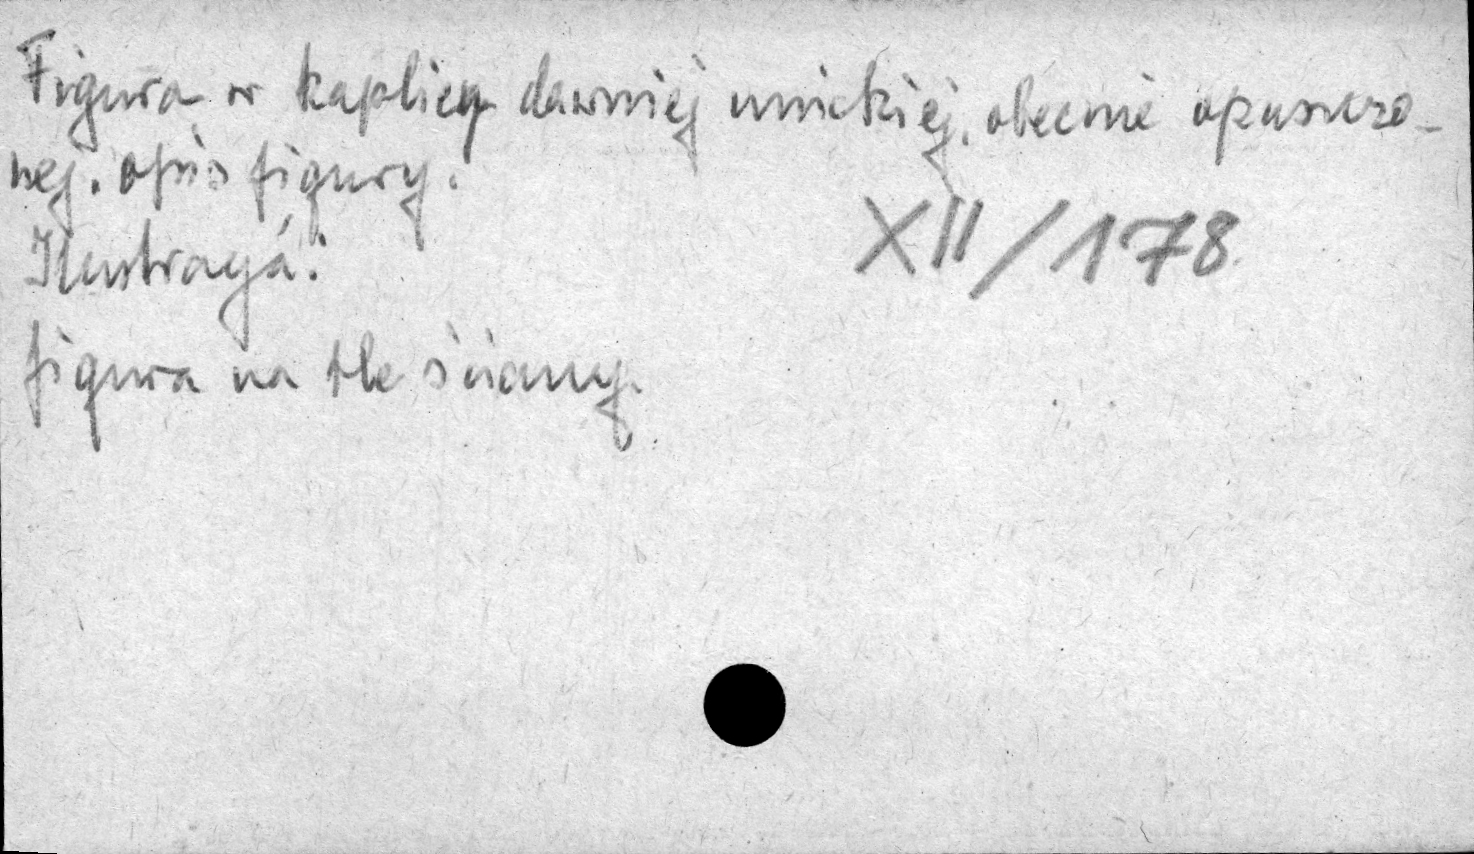 Figura w kaplicy dawniej unickiej, obecnie opuszczo-
nej. opis figury.
XII/178
Ilustracja:
figura na tle ściany.